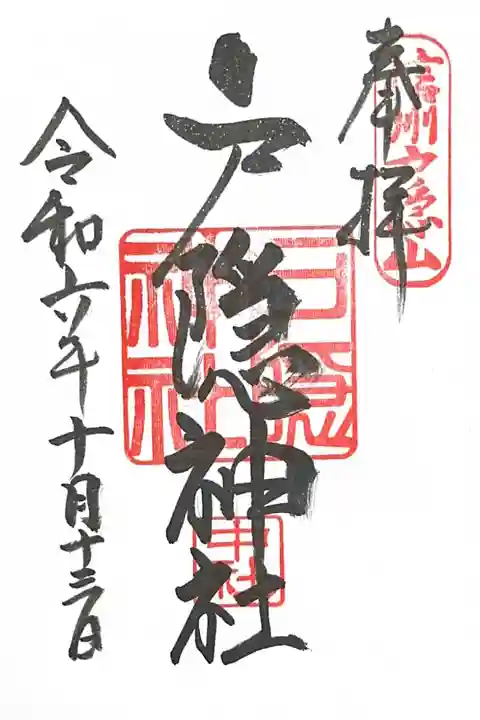 奉拝
信州戸隠山
戸隠神社
戸隠神社
中社
令和六年十月十三日